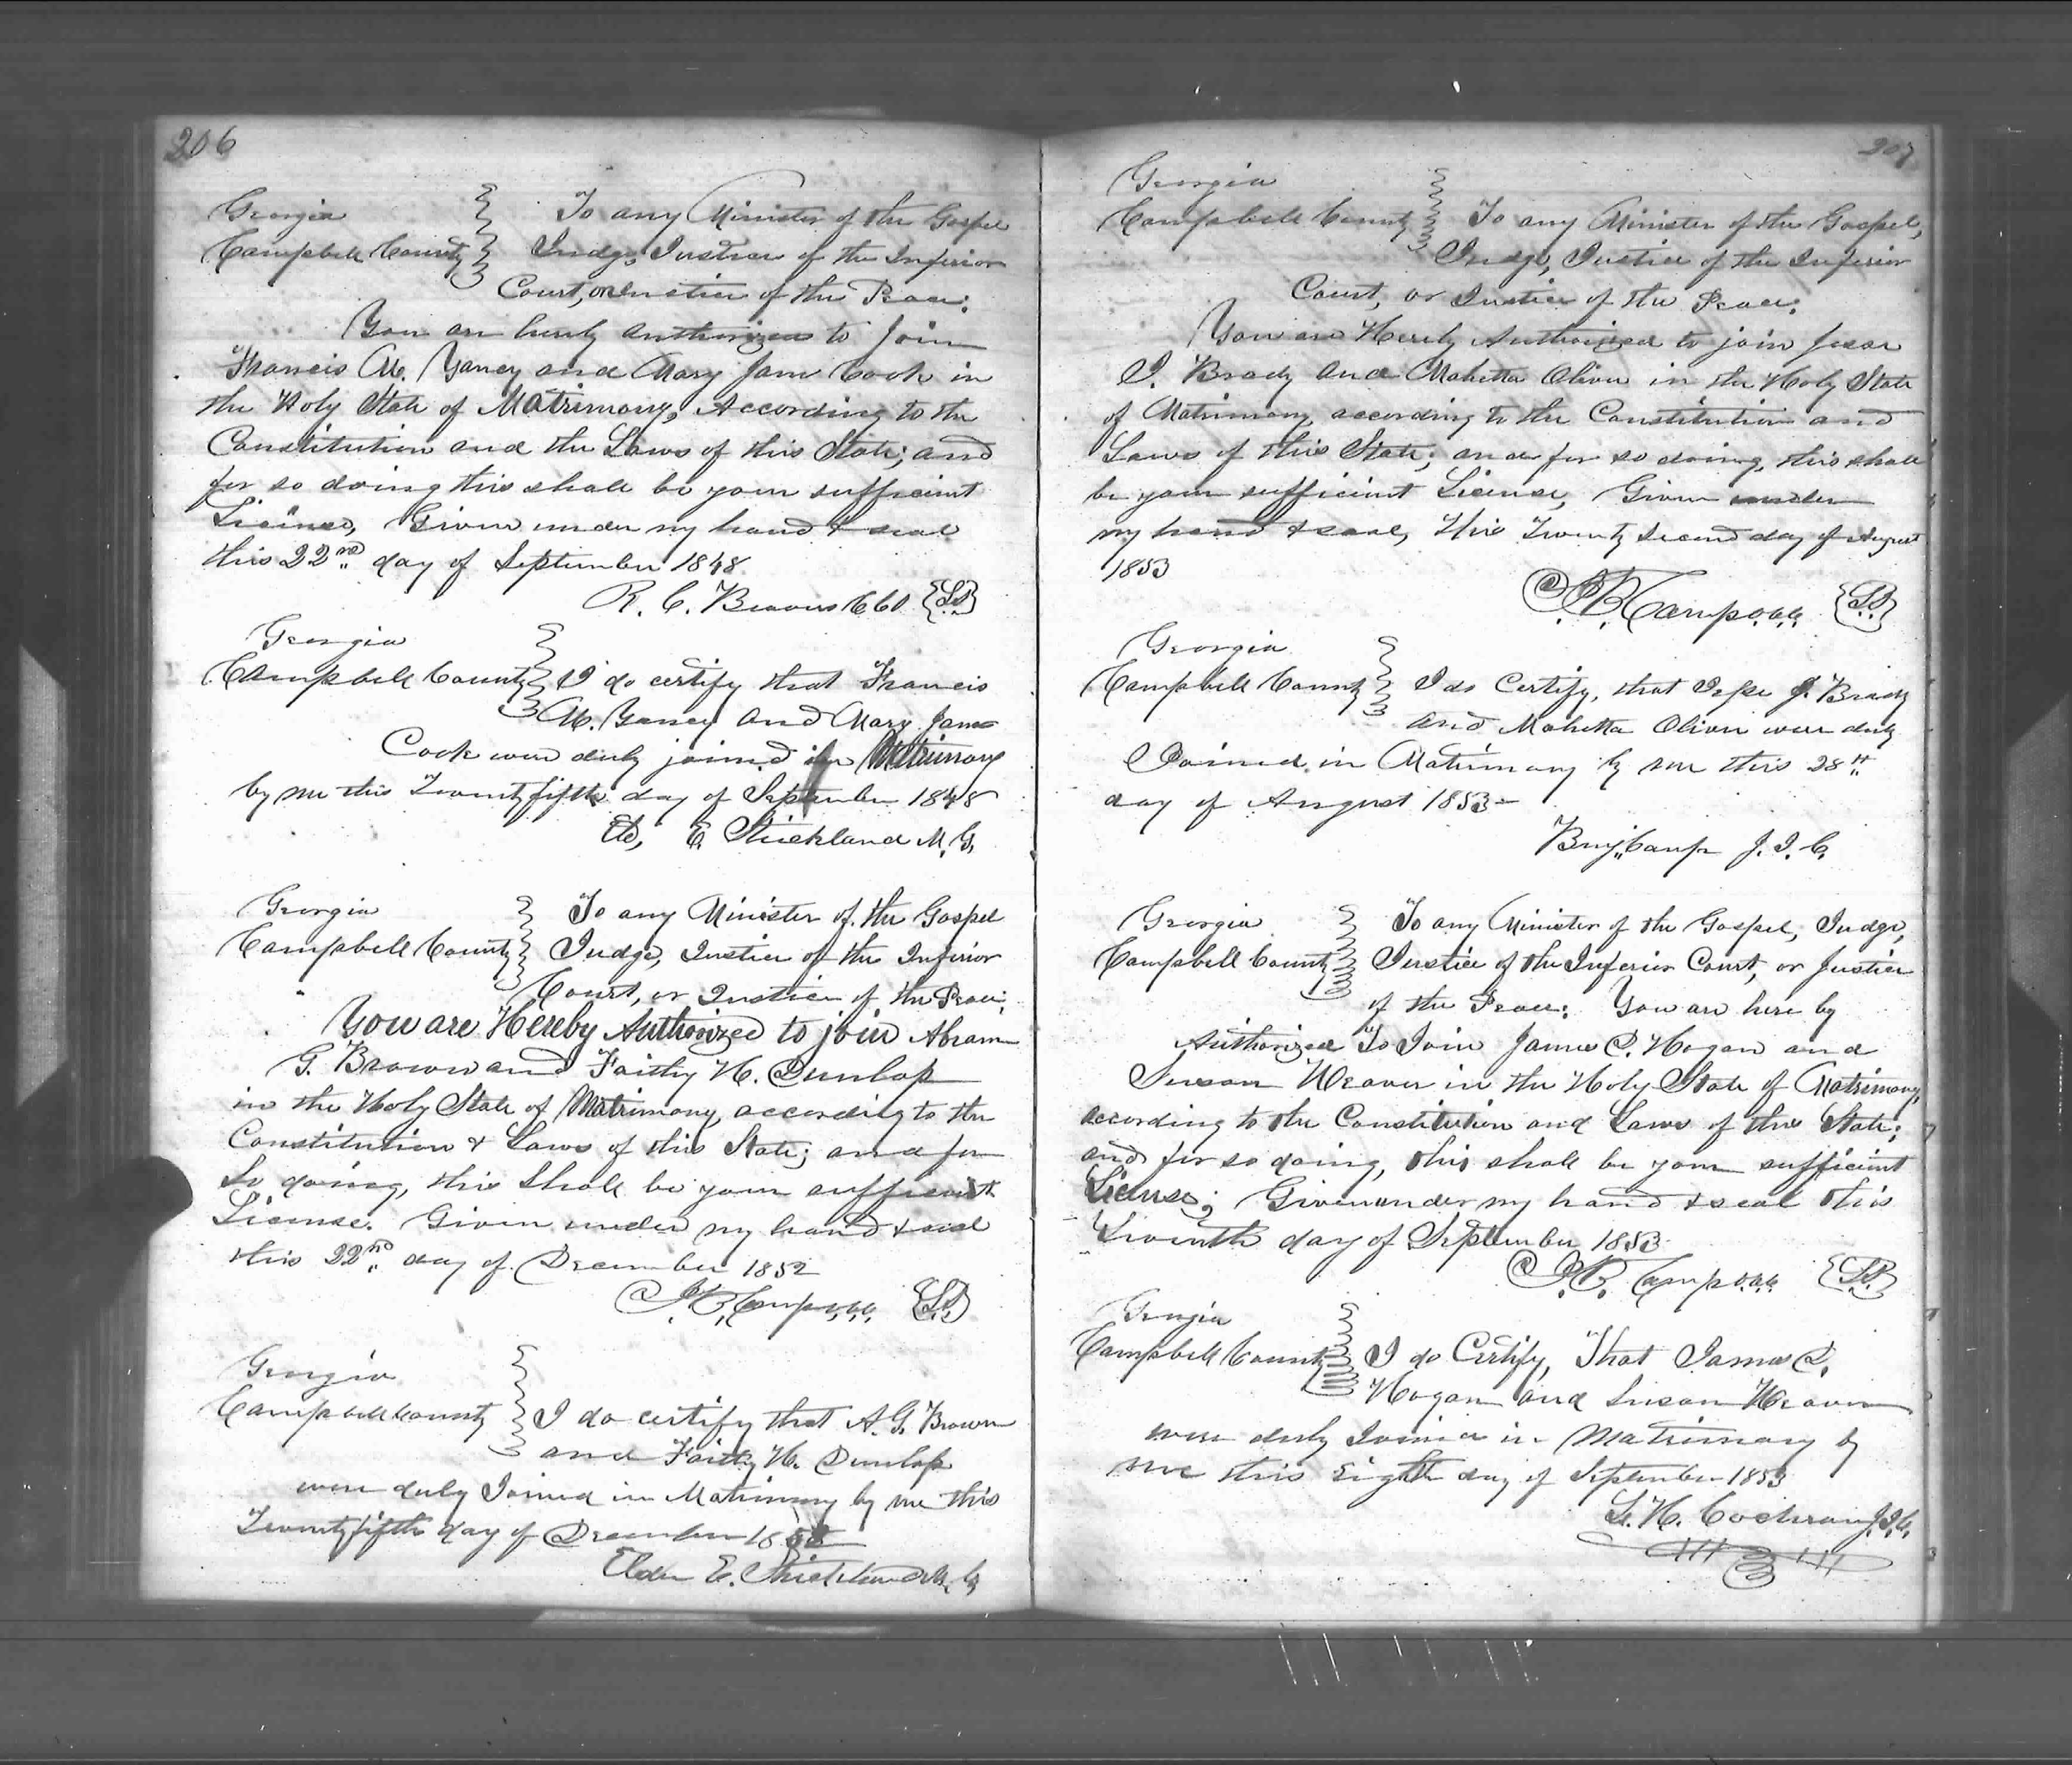 206
Georgia
Campbell County
To any Minister of the Gospel
Judge, Justice of the Inferior
Court, or Justice of the Peace:
You are hereby authorized to join
Francis M. Yancy and Mary Jane Cook in
the Holy State of Matrimony, According to the
Constitution and the Laws of this State; and
for so doing this shall be your sufficient
License, Given under my hand & seal
this 22nd day of September 1848
R. C. Beavers CCO {LS}
Georgia
Campbell County
I do certify that Francis
M. Yancy and Mary Jane
Cook were duly joined in Matrimony
by me this Twenty fifth day of September 1848
Eld, E. Strickland M. G.
Georgia
Campbell County
To any Minister of the Gospel
Judge, Justice of the Inferior
Court, or Justice of the Peace:
You are Hereby Authorized to join Abram
G. Brown and Faithy H. Dunlap
in the Holy State of Matrimony, according to the
Constitution & Laws of this State; and for
so doing, this shall be your sufficient
License. Given under my hand & seal
this 22nd day of December 1852
R. Camp {LS}
Georgia
Campbell County
I do certify that A. G. Brown
and Faithy H. Dunlap
were duly Joined in Matrimony by me this
Twenty fifth day of December 1852
Elder E. Strickland M. G.
207
Georgia
Campbell County
To any Minister of the Gospel,
Judge, Justice of the Inferior
Court, or Justice of the Peace:
You are Hereby Authorized to join Jesse
J. Brady and Mahetta Oliver in the Holy State
of Matrimony, according to the Constitution and
Laws of this State; and for so doing, this shall
be your sufficient License, Given under
my hand & seal, this Twenty second day of August
1853
R. Camp {LS}
Georgia
Campbell County
I do Certify, that Jesse J. Brady
and Mahetta Oliver were duly
Joined in Matrimony by me this 28th
day of August 1853
Benj. Camp J. I. C.
Georgia
Campbell County
To any Minister of the Gospel, Judge,
Justice of the Inferior Court, or Justice
of the Peace: You are here by
Authorized To Join James S. Hogan and
Susan Weaver in the Holy State of Matrimony,
according to the Constitution and Laws of this State;
and for so doing, this shall be your sufficient
License; Given under my hand & seal this
Seventh day of September 1853
R. Camp {LS}
Georgia
Campbell County
I do Certify, That James S.
Hogan and Susan Weaver
were duly Joined in Matrimony by
me this Eighth day of September 1853
L. H. Cochran J. I. C.